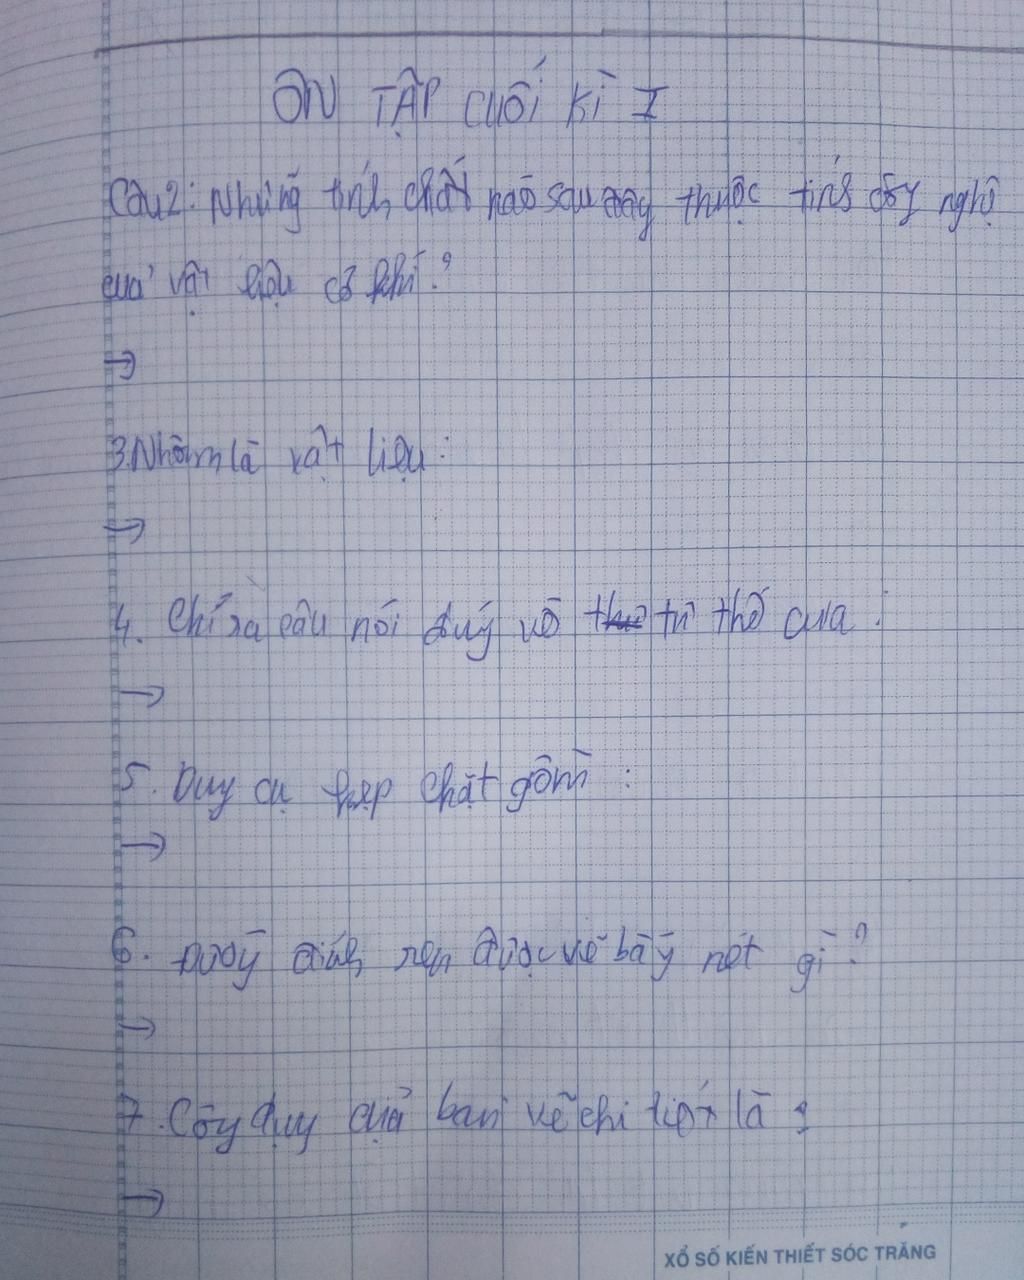 ÔN TẬP CUỐI KÌ I
Câu 2: Những tính chất nào sau đây thuộc tính công nghệ
của vật liệu cơ khí?
→
3. Nhôm là vật liệu:
→
4. Chỉ ra câu nói đúng về tư thế cưa:
→
5. Dụng cụ kẹp chặt gồm:
→
6. Đường đỉnh ren được vẽ bằng nét gì?
→
7. Công dụng của bản vẽ chi tiết là:
→
XỔ SỐ KIẾN THIẾT SÓC TRĂNG